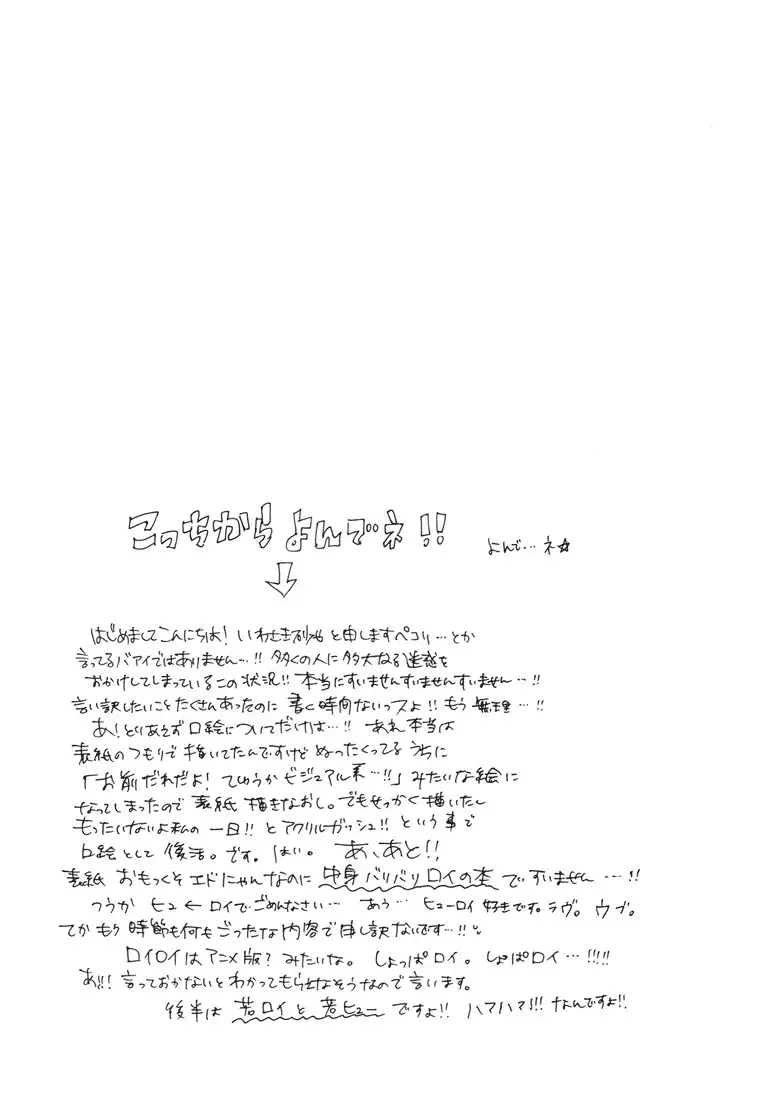 こっちから よんでネ!!
よんで…ネ☆
↓
はじめましてこんにちは! いわさき と申しますペコリ…とか
言ってるバアイではありません…!! 多くの人に多大なる迷惑を
おかけしてしまっているこの状況!! 本当にすいませんすいませんすいません…!!
言い訳したいことたくさんあったのに 書く時間ないっスよ!! もう 無理…!!
あ! とりあえず口絵についてだけは…!! あれ本当は
表紙のつもりで描いてたんですけど ぬったくってるうちに
「お前だれだよ! てゆうかビジュアル系…!!」みたいな絵に
なってしまったので 表紙 描きなおし。でもせっかく描いたし
もったいないよ私の一日!! とアクリルガッシュ!! という事で
口絵として 復活。です。はい。 あ、あと!!
表紙 おもっくそエドにゃんなのに 中身バリバリロイの本ですいません…!!
つうか ヒュ←ロイでごめんなさい… あう… ヒューロイ好きです。ラヴ。ウブ。
てかもう 時節も何もごったな内容で申し訳ないです…!!
ロイロイはアニメ版? みたいな。しょっぱロイ。しょぱロイ…!!!!
あ!! 言っておかないとわかってもらえなそうなので言います。
後半は 若ロイと若ヒュー ですよ!! ハァハァ!!! なんですよ!!